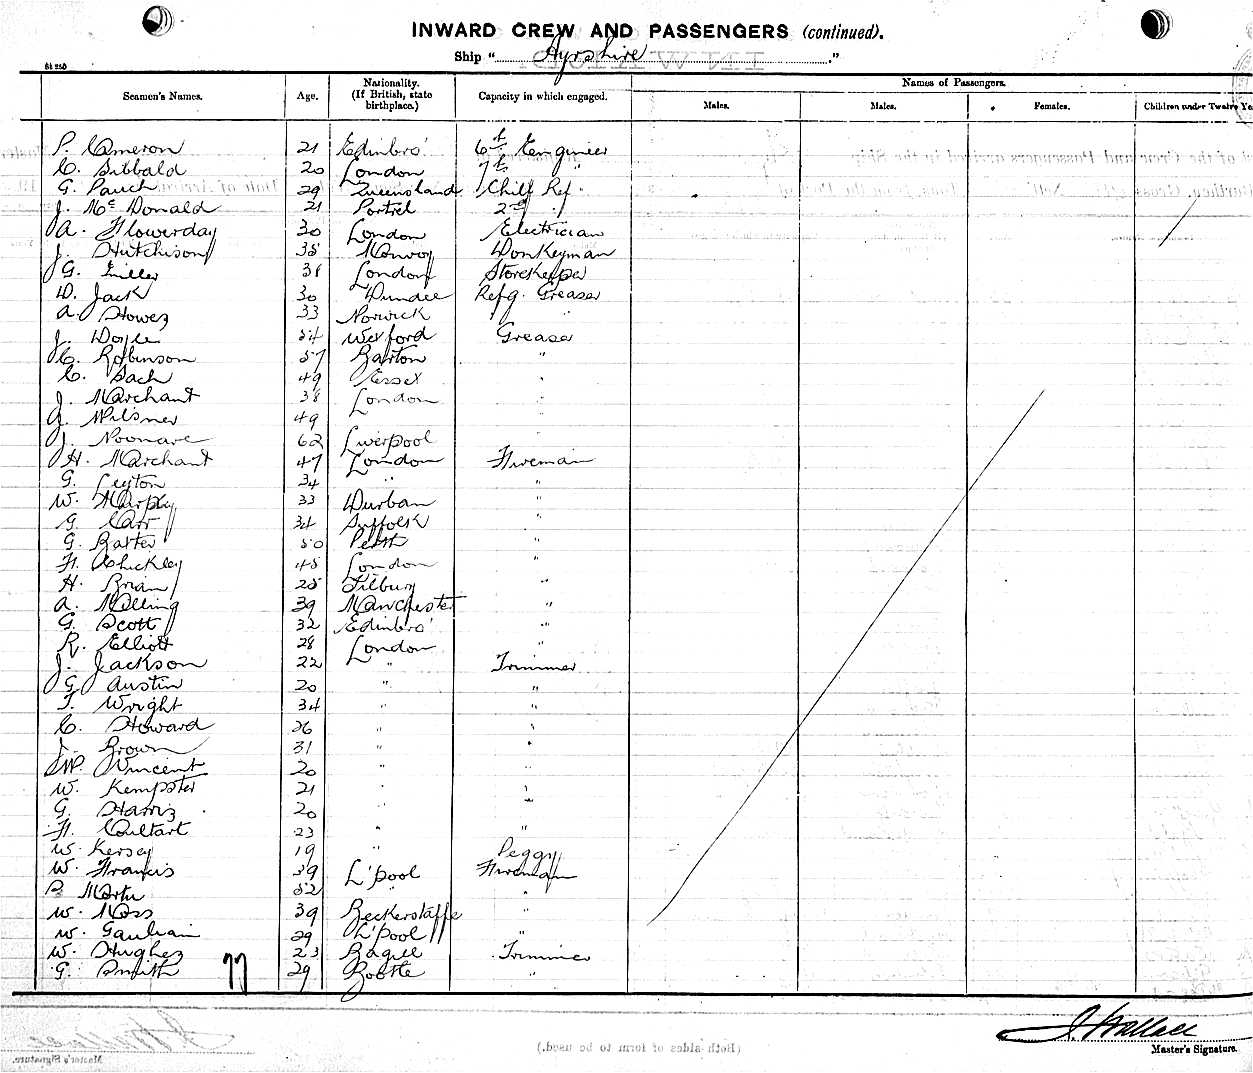 INWARD CREW AND PASSENGERS (continued).
Ship "Ayrshire"
Seamen's Names. Age. Nationality. (If British, state birthplace.) Capacity in which engaged. Names of Passengers.
Males. Males. Females. Children under Twelve Ye
P. Cameron 21 Edinbro' 6th Engineer
C. Sibbald 20 London 7th "
G. Pauch 29 Queensland Chief Ref.
J. McDonald 21 2nd "
A. Flowerday 30 London Electrician
J. Hutchison 35 Donkeyman
G. 38 London Storekeeper
D. Jack 30 Dundee Refg. Greaser
A. Howes 33 Norwick "
J. Doyle 54 Wexford Greaser
C. Robinson 57 Barton "
C. Sach 49 Essex "
J. Marchant 38 London "
G. Milsner 49 "
J. Noonare 62 Liverpool "
H. Marchant 47 London Fireman
G. Leyton 34 " "
W. Murphy 33 Durban "
G. Carr 34 Suffolk "
G. Baxter 50 Perth "
H. Chickley 45 London "
H. Brian 25 Tilbury "
A. Melling 39 Manchester "
G. Scott 32 Edinbro' "
R. Elliott 28 London "
J. Jackson 22 " Trimmer
G. Austin 20 " "
T. Wright 34 " "
C. Howard 26 " "
J. Brown 31 " "
W. Vincent 20 " "
W. Kempster 21 " "
G. Harris 20 " "
H. Coultart 23 " "
W. Kersey 19 " Peggy
W. Francis 39 L'pool Fireman
B. Martin 52 " "
W. Moss 39 Beckerstaffe "
W. 29 L'pool "
W. Hughes 23 Bagill Trimmer
G. Smith 29 Bootle "
77
J. Wallace
Master's Signature.
(Both sides of form to be used.)